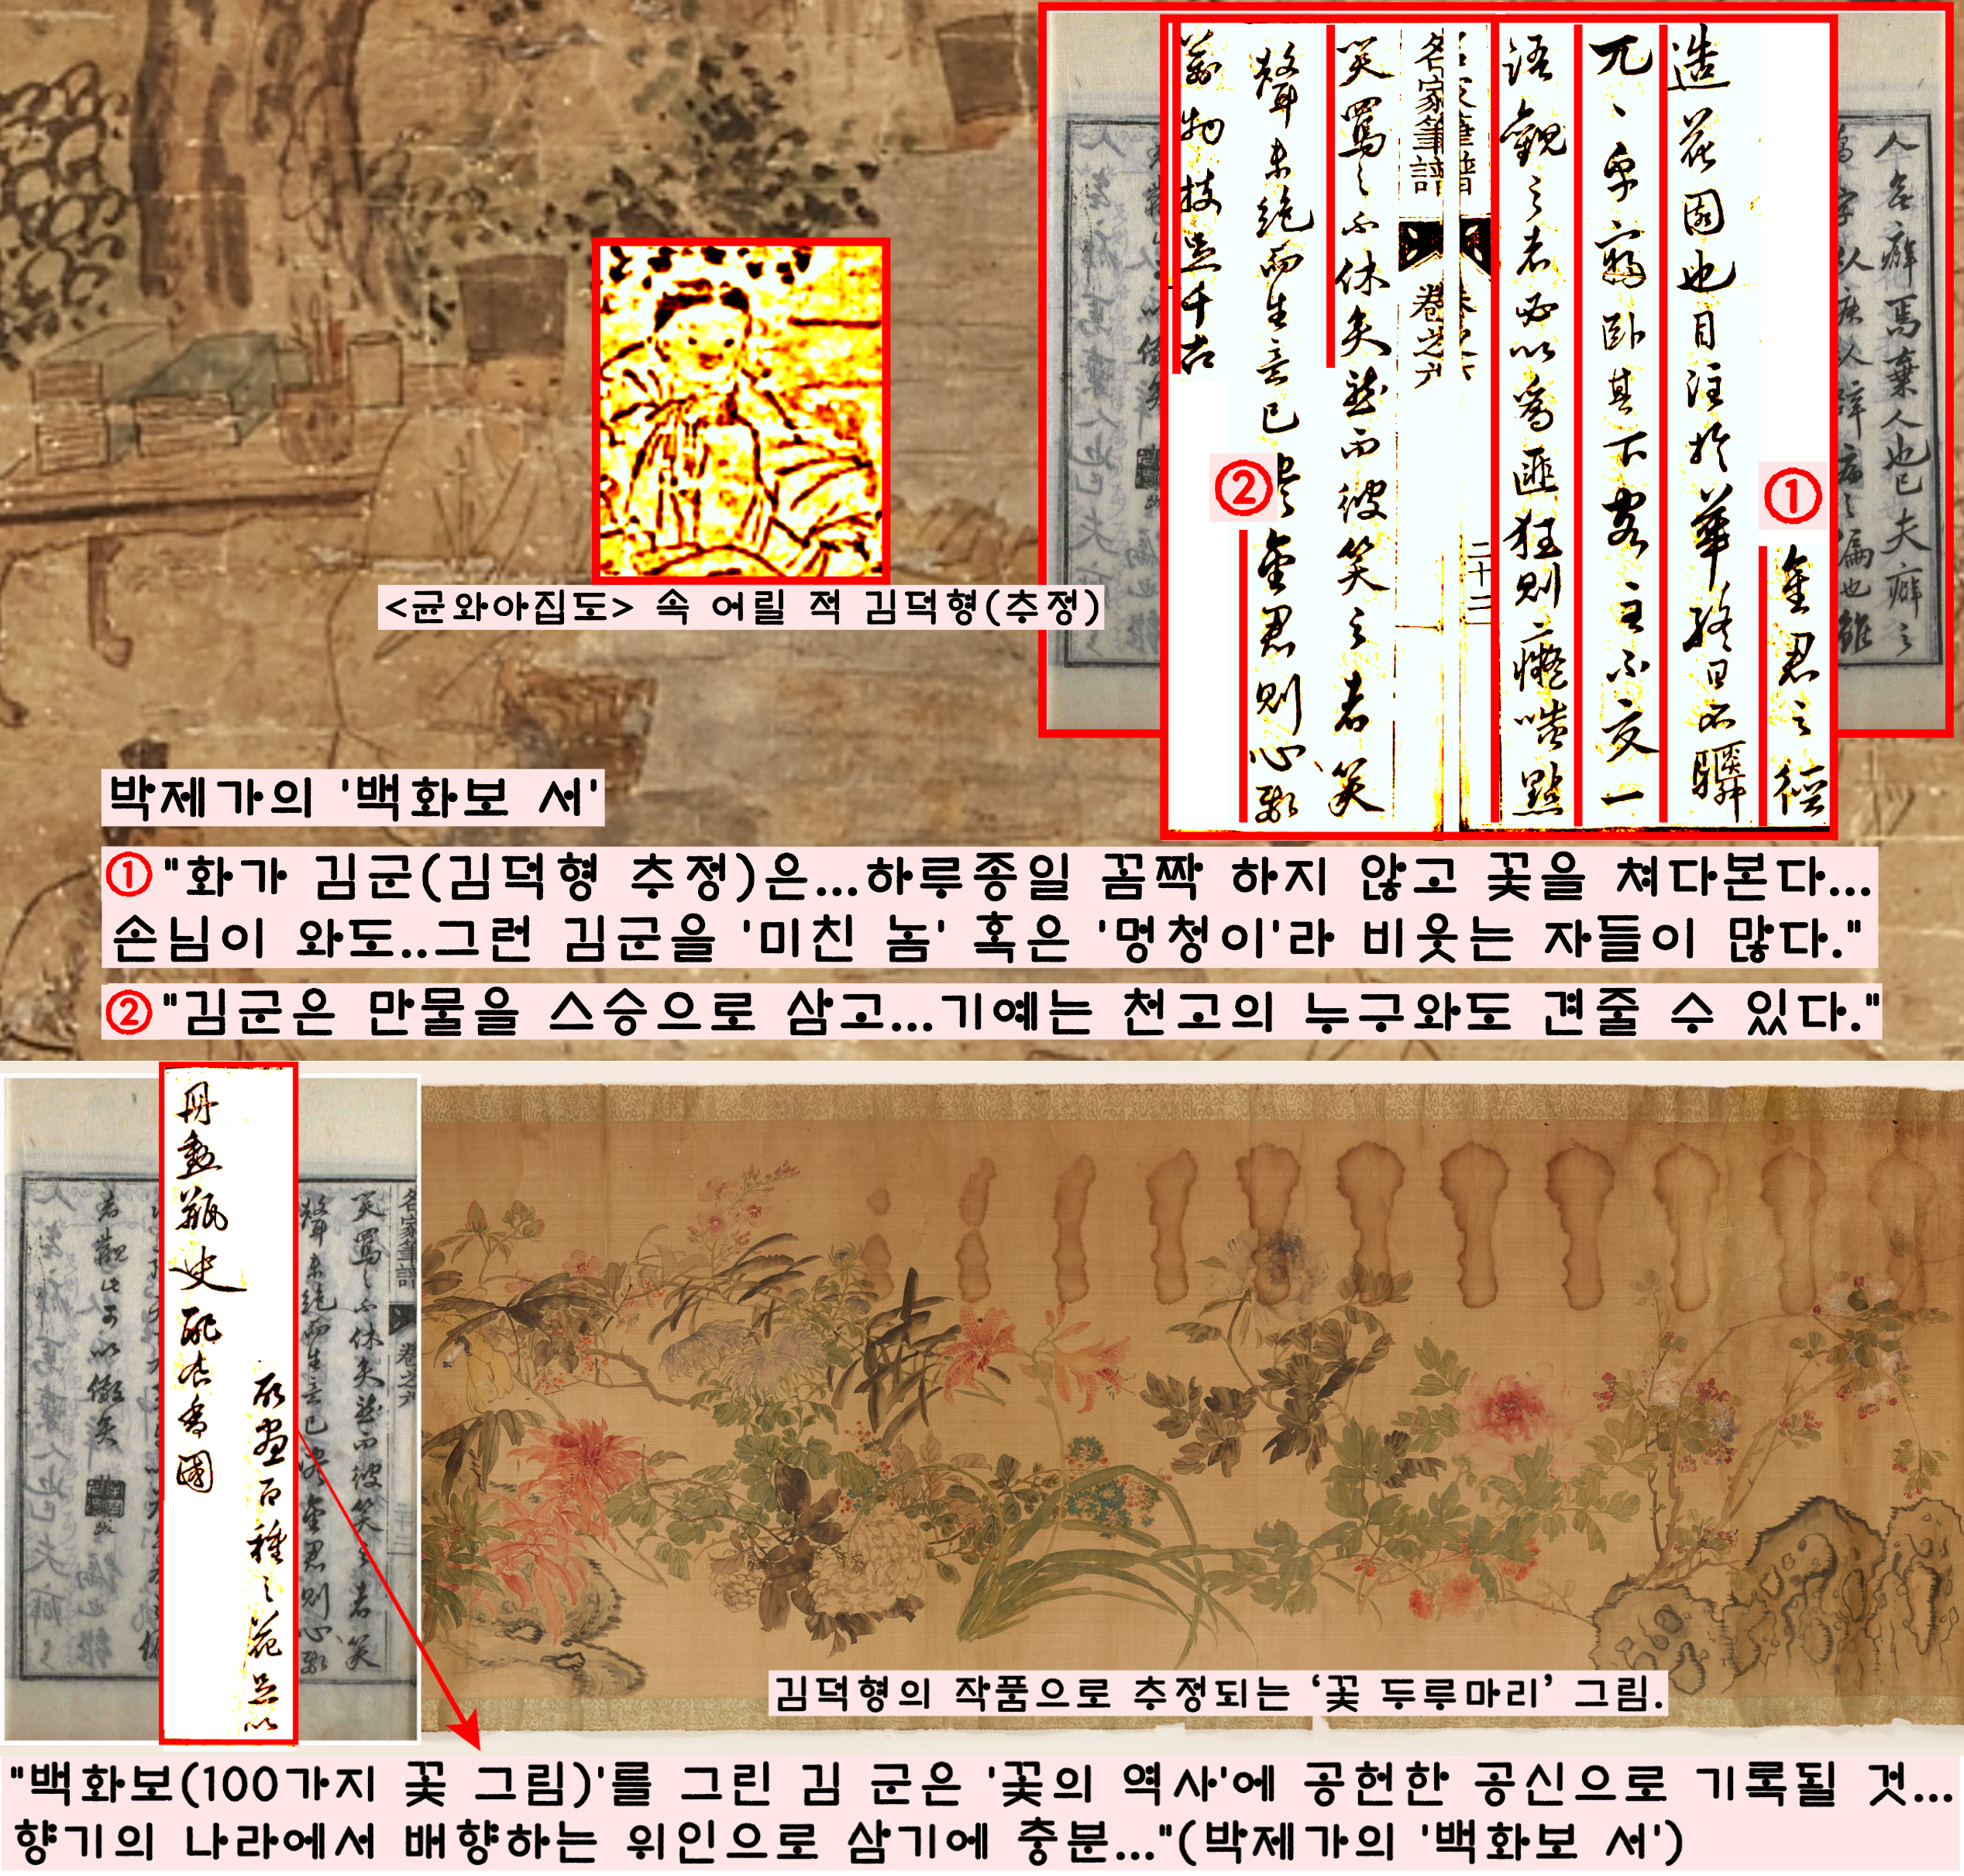 人無癖焉棄人也已夫癖之
金君之徑
造花園也目注於華終日不瞬
兀〻乎寢臥其下客主不交一
語觀之者必以爲匪狂則癡嗤點
名家筆譜 卷之六
二十二
笑罵之不休矣然而彼笑之者笑
聲未絶而生意已盡金君則心師
萬物技足千古
①
②
<균와아집도> 속 어릴 적 김덕형(추정)
박제가의 '백화보 서'
①"화가 김군(김덕형 추정)은...하루종일 꼼짝 하지 않고 꽃을 쳐다본다...
손님이 와도..그런 김군을 '미친 놈' 혹은 '멍청이'라 비웃는 자들이 많다."
②"김군은 만물을 스승으로 삼고...기예는 천고의 누구와도 견줄 수 있다."
名家筆譜 卷之六
笑罵之不休矣然而彼笑之者笑
聲未絶而生意已盡金君則心師
所畫百種之花足以
冊勳甁史配食香國
者觀此可以儆矣
김덕형의 작품으로 추정되는 ‘꽃 두루마리’ 그림.
"백화보(100가지 꽃 그림)'를 그린 김 군은 '꽃의 역사'에 공헌한 공신으로 기록될 것...
향기의 나라에서 배향하는 위인으로 삼기에 충분..."(박제가의 '백화보 서')